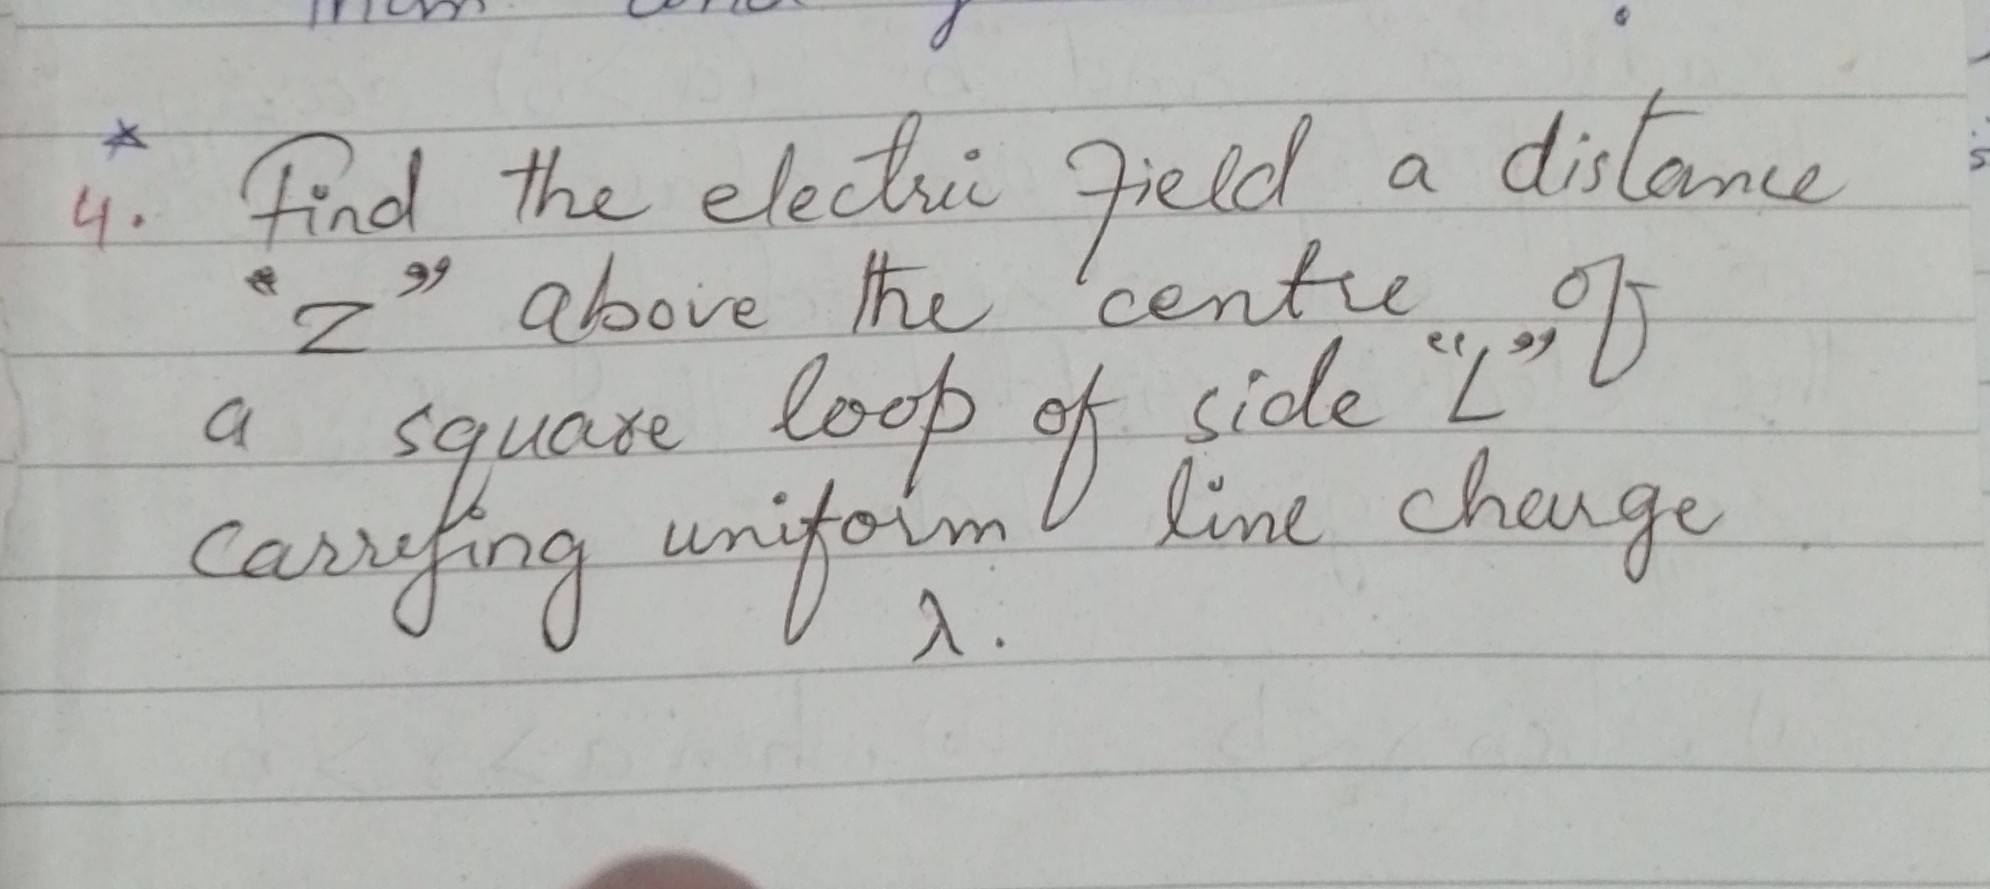 4. Find the electric field a distance
"Z" above the centre of
a square loop of side "L"
carrying uniform line charge
λ.